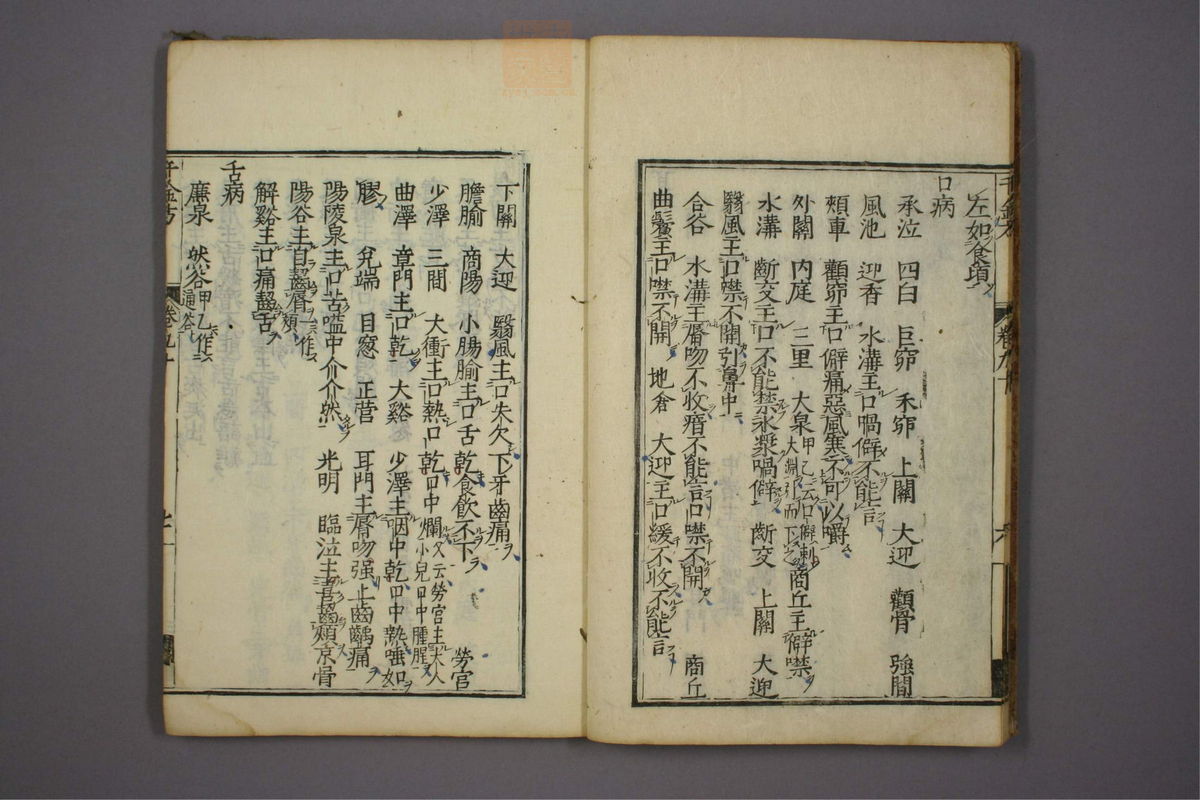 左如食頃
口病
承泣 四白 巨窌 禾窌 上關 大迎 顴骨 強間
風池 迎香 水溝主口喎僻不能言
頰車 顴窌主口僻痛惡風寒不可以嚼
外關 內庭 三里 大泉甲乙云口僻刺大淵引而下之商丘主僻噤
水溝 齗交主口不能禁水漿喎僻 齗交 上關 大迎
翳風主口噤不開引鼻中
合谷 水溝主脣吻不收瘖不能言口噤不開 商丘
曲鬢主口噤不開 地倉 大迎主口緩不收不能言
下關 大迎 翳風主口失欠下牙齒痛
膽腧 商陽 小腸腧主口舌乾食飲不下 勞宮
少澤 三間 大衝主口熱口乾口中爛又云勞宮主大人小兒口中腫腥
曲澤 章門主口乾 大谿 少澤主咽中乾口中熱唾如
膠 兌端 目窓 正營 耳門主脣吻强上齒齲痛
陽陵泉主口苦嗌中介介然 光明 臨泣主喜齧頰京骨
陽谷主自齧脣一作頰
解谿主口痛齧舌
舌病
廉泉 然谷甲乙作通谷
千金方
卷九十